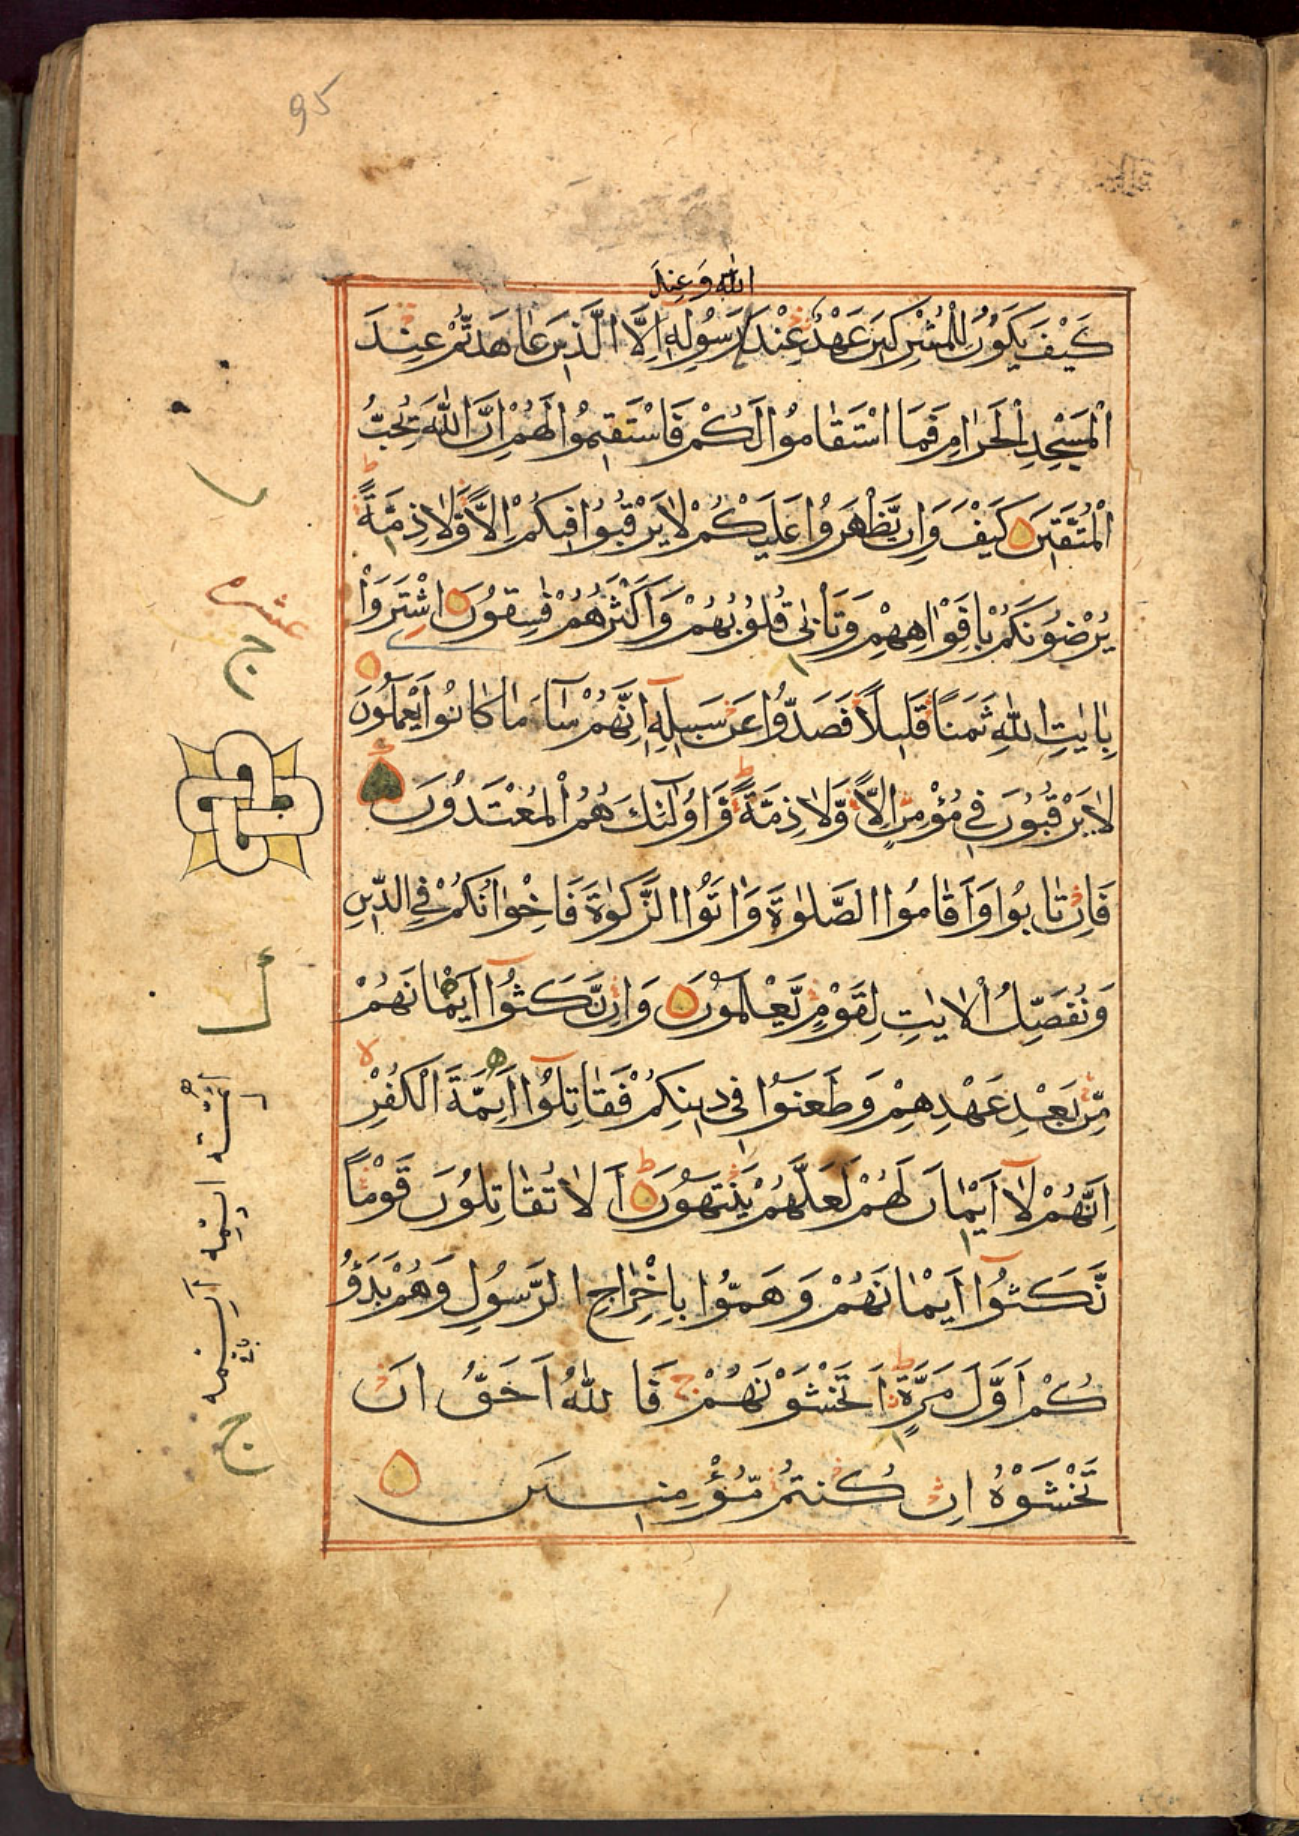 95
الله وعند
كَيْفَ يَكُوْنُ لِلْمُشْرِكِيْنَ عَهْدٌ عِنْدَ رَسُوْلِهٖ اِلَّا الَّذِيْنَ عَاهَدْتُّمْ عِنْدَ
الْمَسْجِدِ الْحَرَامِ فَمَا اسْتَقَامُوْا لَكُمْ فَاسْتَقِيْمُوْا لَهُمْ اِنَّ اللّٰهَ يُحِبُّ
الْمُتَّقِيْنَ كَيْفَ وَاِنْ يَّظْهَرُوْا عَلَيْكُمْ لَا يَرْقُبُوْا فِيْكُمْ اِلًّا وَّلَا ذِمَّةً ط
يُرْضُوْنَكُمْ بِاَفْوَاهِهِمْ وَتَاْبٰى قُلُوْبُهُمْ وَاَكْثَرُهُمْ فٰسِقُوْنَ اشْتَرَوْا
بِاٰيٰتِ اللّٰهِ ثَمَنًا قَلِيْلًا فَصَدُّوْا عَنْ سَبِيْلِهٖ اِنَّهُمْ سَآءَ مَا كَانُوْا يَعْمَلُوْنَ
لَا يَرْقُبُوْنَ فِيْ مُؤْمِنٍ اِلًّا وَّلَا ذِمَّةً ط وَاُولٰٓئِكَ هُمُ الْمُعْتَدُوْنَ
فَاِنْ تَابُوْا وَاَقَامُوا الصَّلٰوةَ وَاٰتَوُا الزَّكٰوةَ فَاِخْوَانُكُمْ فِي الدِّيْنِ
وَنُفَصِّلُ الْاٰيٰتِ لِقَوْمٍ يَّعْلَمُوْنَ وَاِنْ نَّكَثُوْٓا اَيْمَانَهُمْ
مِّنْ بَعْدِ عَهْدِهِمْ وَطَعَنُوْا فِيْ دِيْنِكُمْ فَقَاتِلُوْٓا اَئِمَّةَ الْكُفْرِ لا
اِنَّهُمْ لَآ اَيْمَانَ لَهُمْ لَعَلَّهُمْ يَنْتَهُوْنَ ط اَلَا تُقَاتِلُوْنَ قَوْمًا
نَّكَثُوْٓا اَيْمَانَهُمْ وَهَمُّوْا بِاِخْرَاجِ الرَّسُوْلِ وَهُمْ بَدَؤُ
كُمْ اَوَّلَ مَرَّةٍ ط اَتَخْشَوْنَهُمْ ج فَاللّٰهُ اَحَقُّ اَنْ
تَخْشَوْهُ اِنْ كُنْتُمْ مُّؤْمِنِيْنَ
عشر
ج
ج